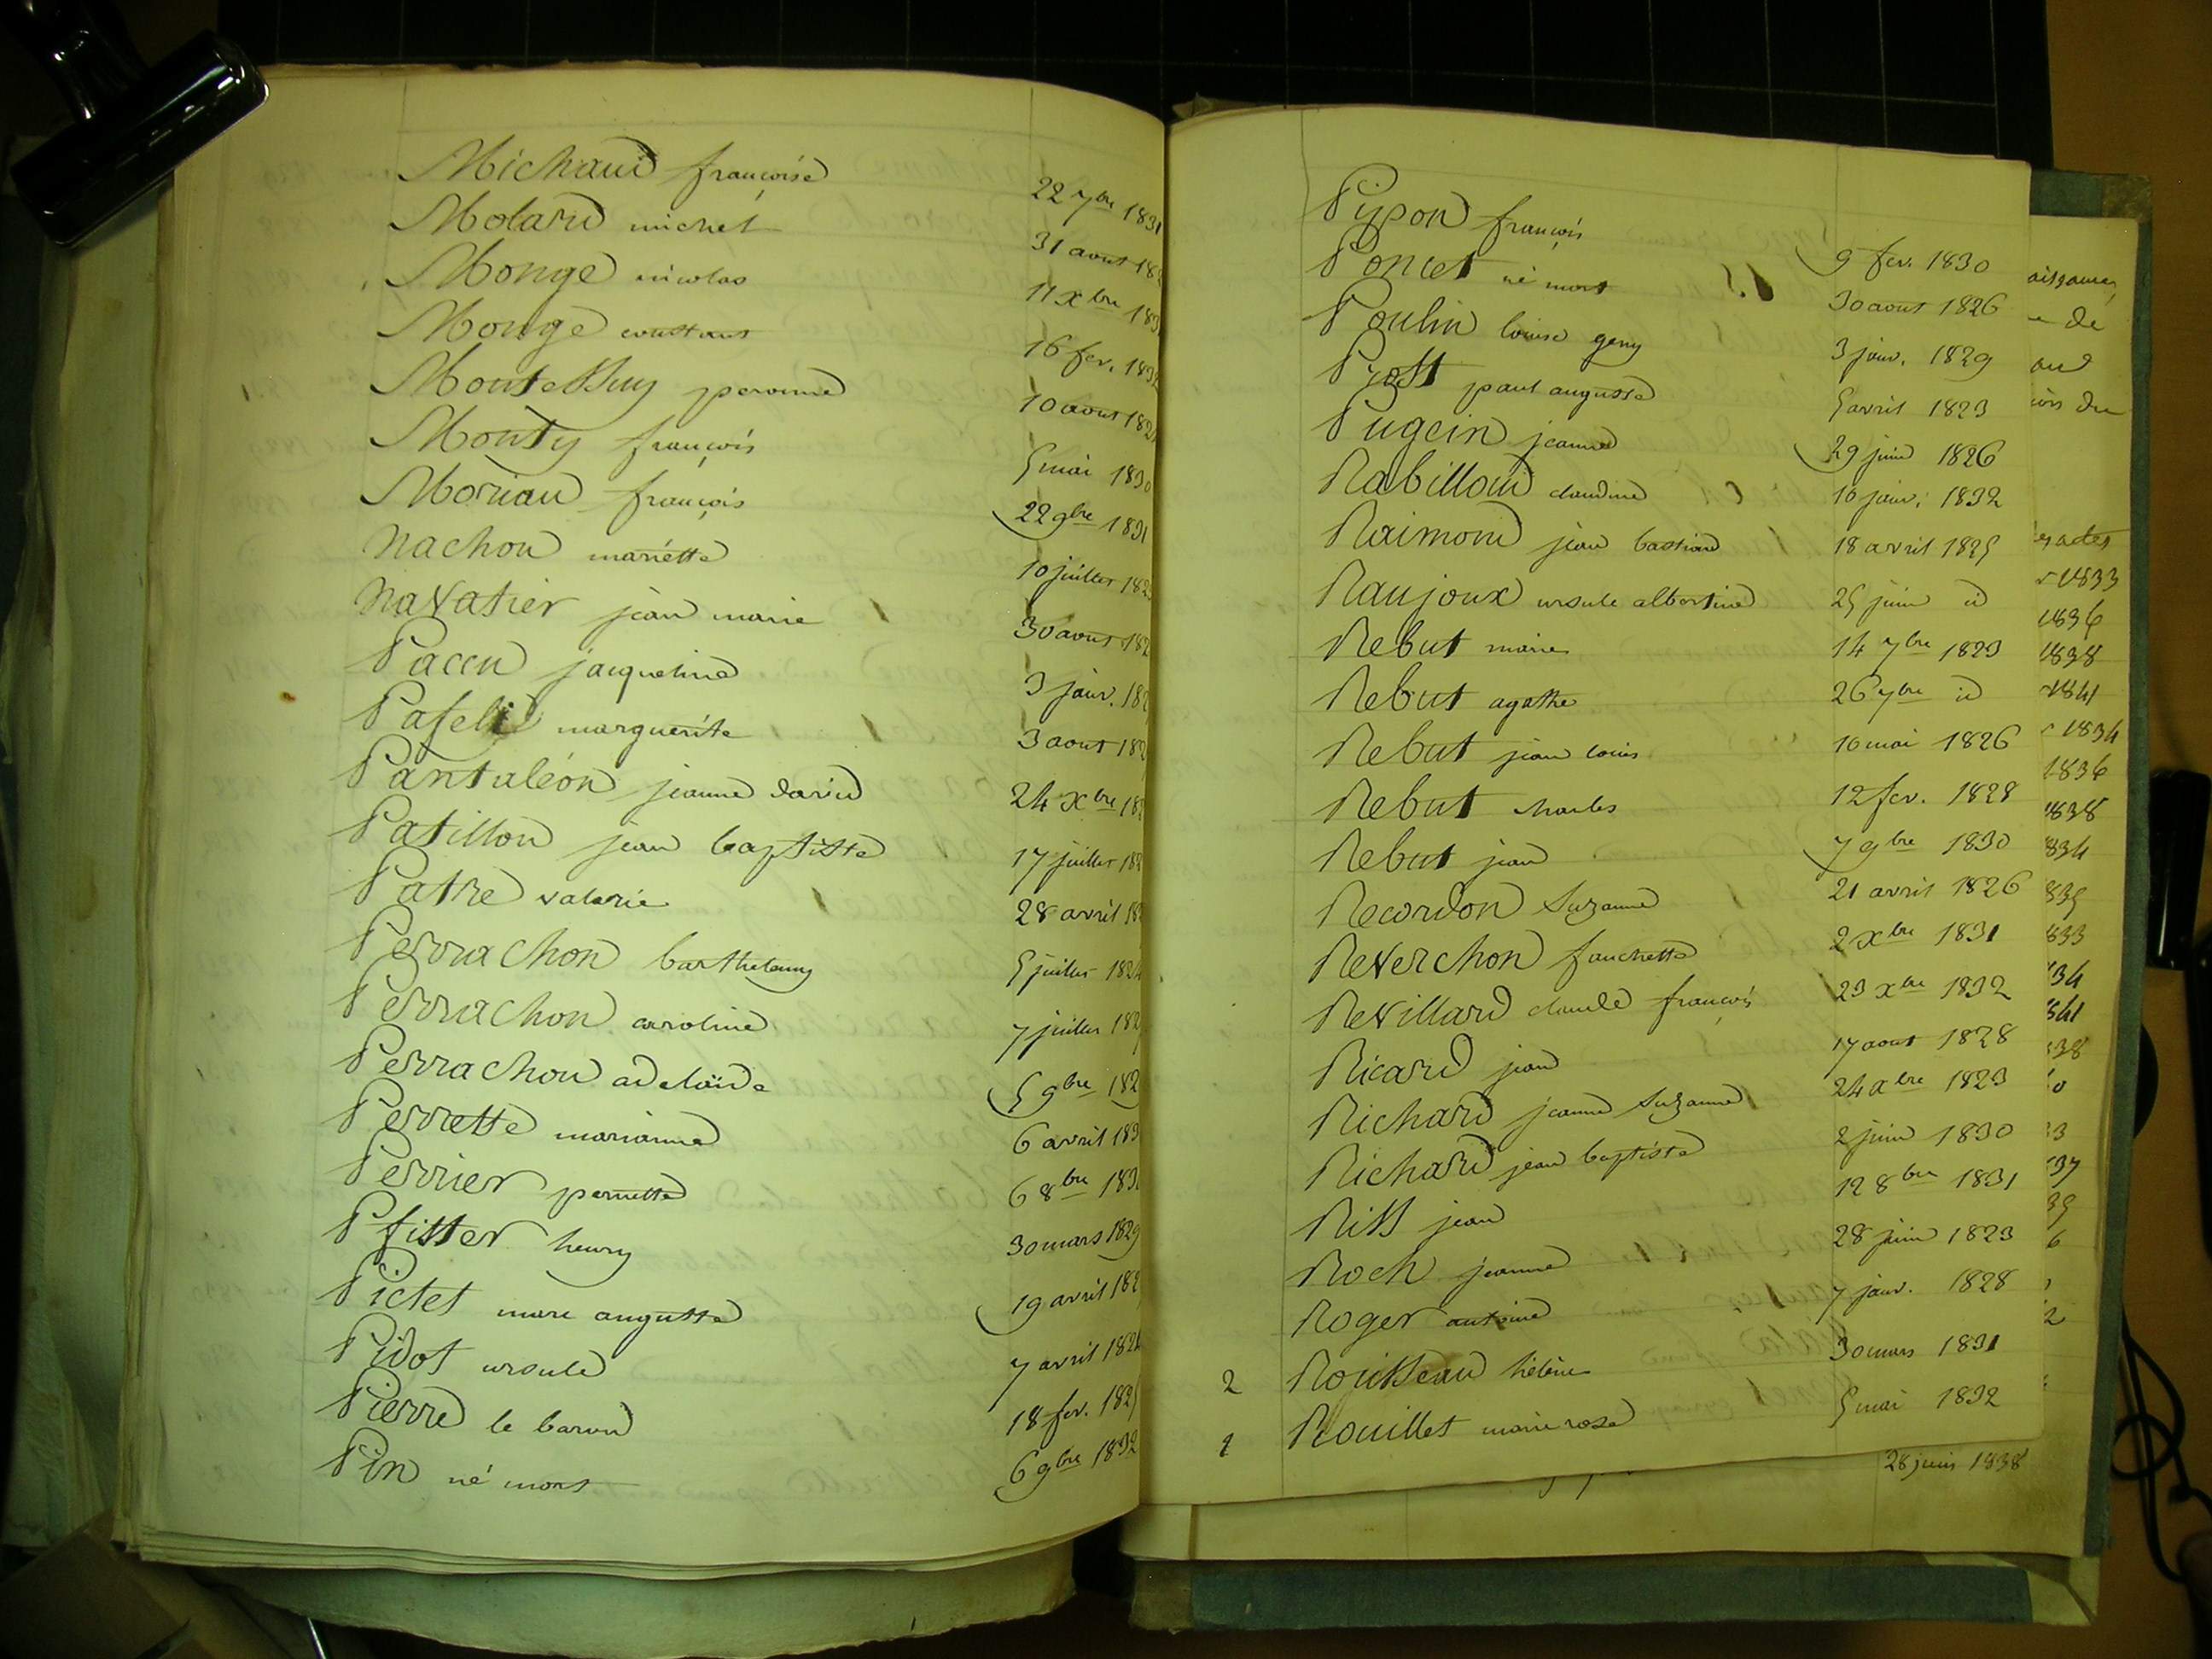 Michaud françoise 22 7bre 1831
Molard michel 31 aout 18
Monge nicolas 11 xbre 183
Monge constant 16 fev. 183
Montessuy peronne 10 aout 182
Monty françois 5 mai 1830
Moriau françois 22 9bre 1831
Nachon mariette 10 juillet 182
Navatier jean marie 30 aout 182
Paccu jacqueline 3 janv. 182
Pafeli marguerite 3 aout 182
Pantaléon jeanne david 24 xbre 18
Patillon jean baptiste 17 juillet 18
Patre valerie 28 avril 18
Perrachon barthelemy 5 juillet 182
Perrachon caroline 7 juillet 182
Perrachon adelaïde 5 9bre 182
Perrette marianne 6 avril 183
Perrier pernette 6 8bre 183
Pfister henry 30 mars 1829
Pictet marc auguste 19 avril 182
Pidot ursule 7 avril 182
Pierre le baron 18 fev. 1825
Pin né mort 6 9bre 1832
Pipon françois 9 fev. 1830
Poncet né mort 30 aout 1826
Poulin louise geny 3 janv. 1829
Prost paul auguste 5 avril 1823
Pugein jeanne 29 juin 1826
Rabilloud claudine 16 janv. 1832
Raimond jean bastian 18 avril 1825
Raujoux ursule albertine 25 juin id
Rebut marie 14 7bre 1823
Rebut agathe 26 7bre id
Rebut jean louis 16 mai 1826
Rebut charles 12 fev. 1828
Rebut jean 7 9bre 1830
Recordon Suzanne 21 avril 1826
Reverchon fanchette 2 xbre 1831
Revillard claude françois 23 xbre 1832
Ricard jean 17 aout 1828
Richard jeanne Suzanne 24 xbre 1823
Richard jean baptiste 2 juin 1830
Riss jean 12 8bre 1831
Roch jeanne 28 juin 1823
Roger antoine 7 janv. 1828
2 Rousseau hélène 30 mars 1831
1 Rouillet marie rose 5 mai 1832
28 juin 1838
de
du
actes
1833
1836
1838
1841
1834
1836
1838
834
835
833
34
841
38